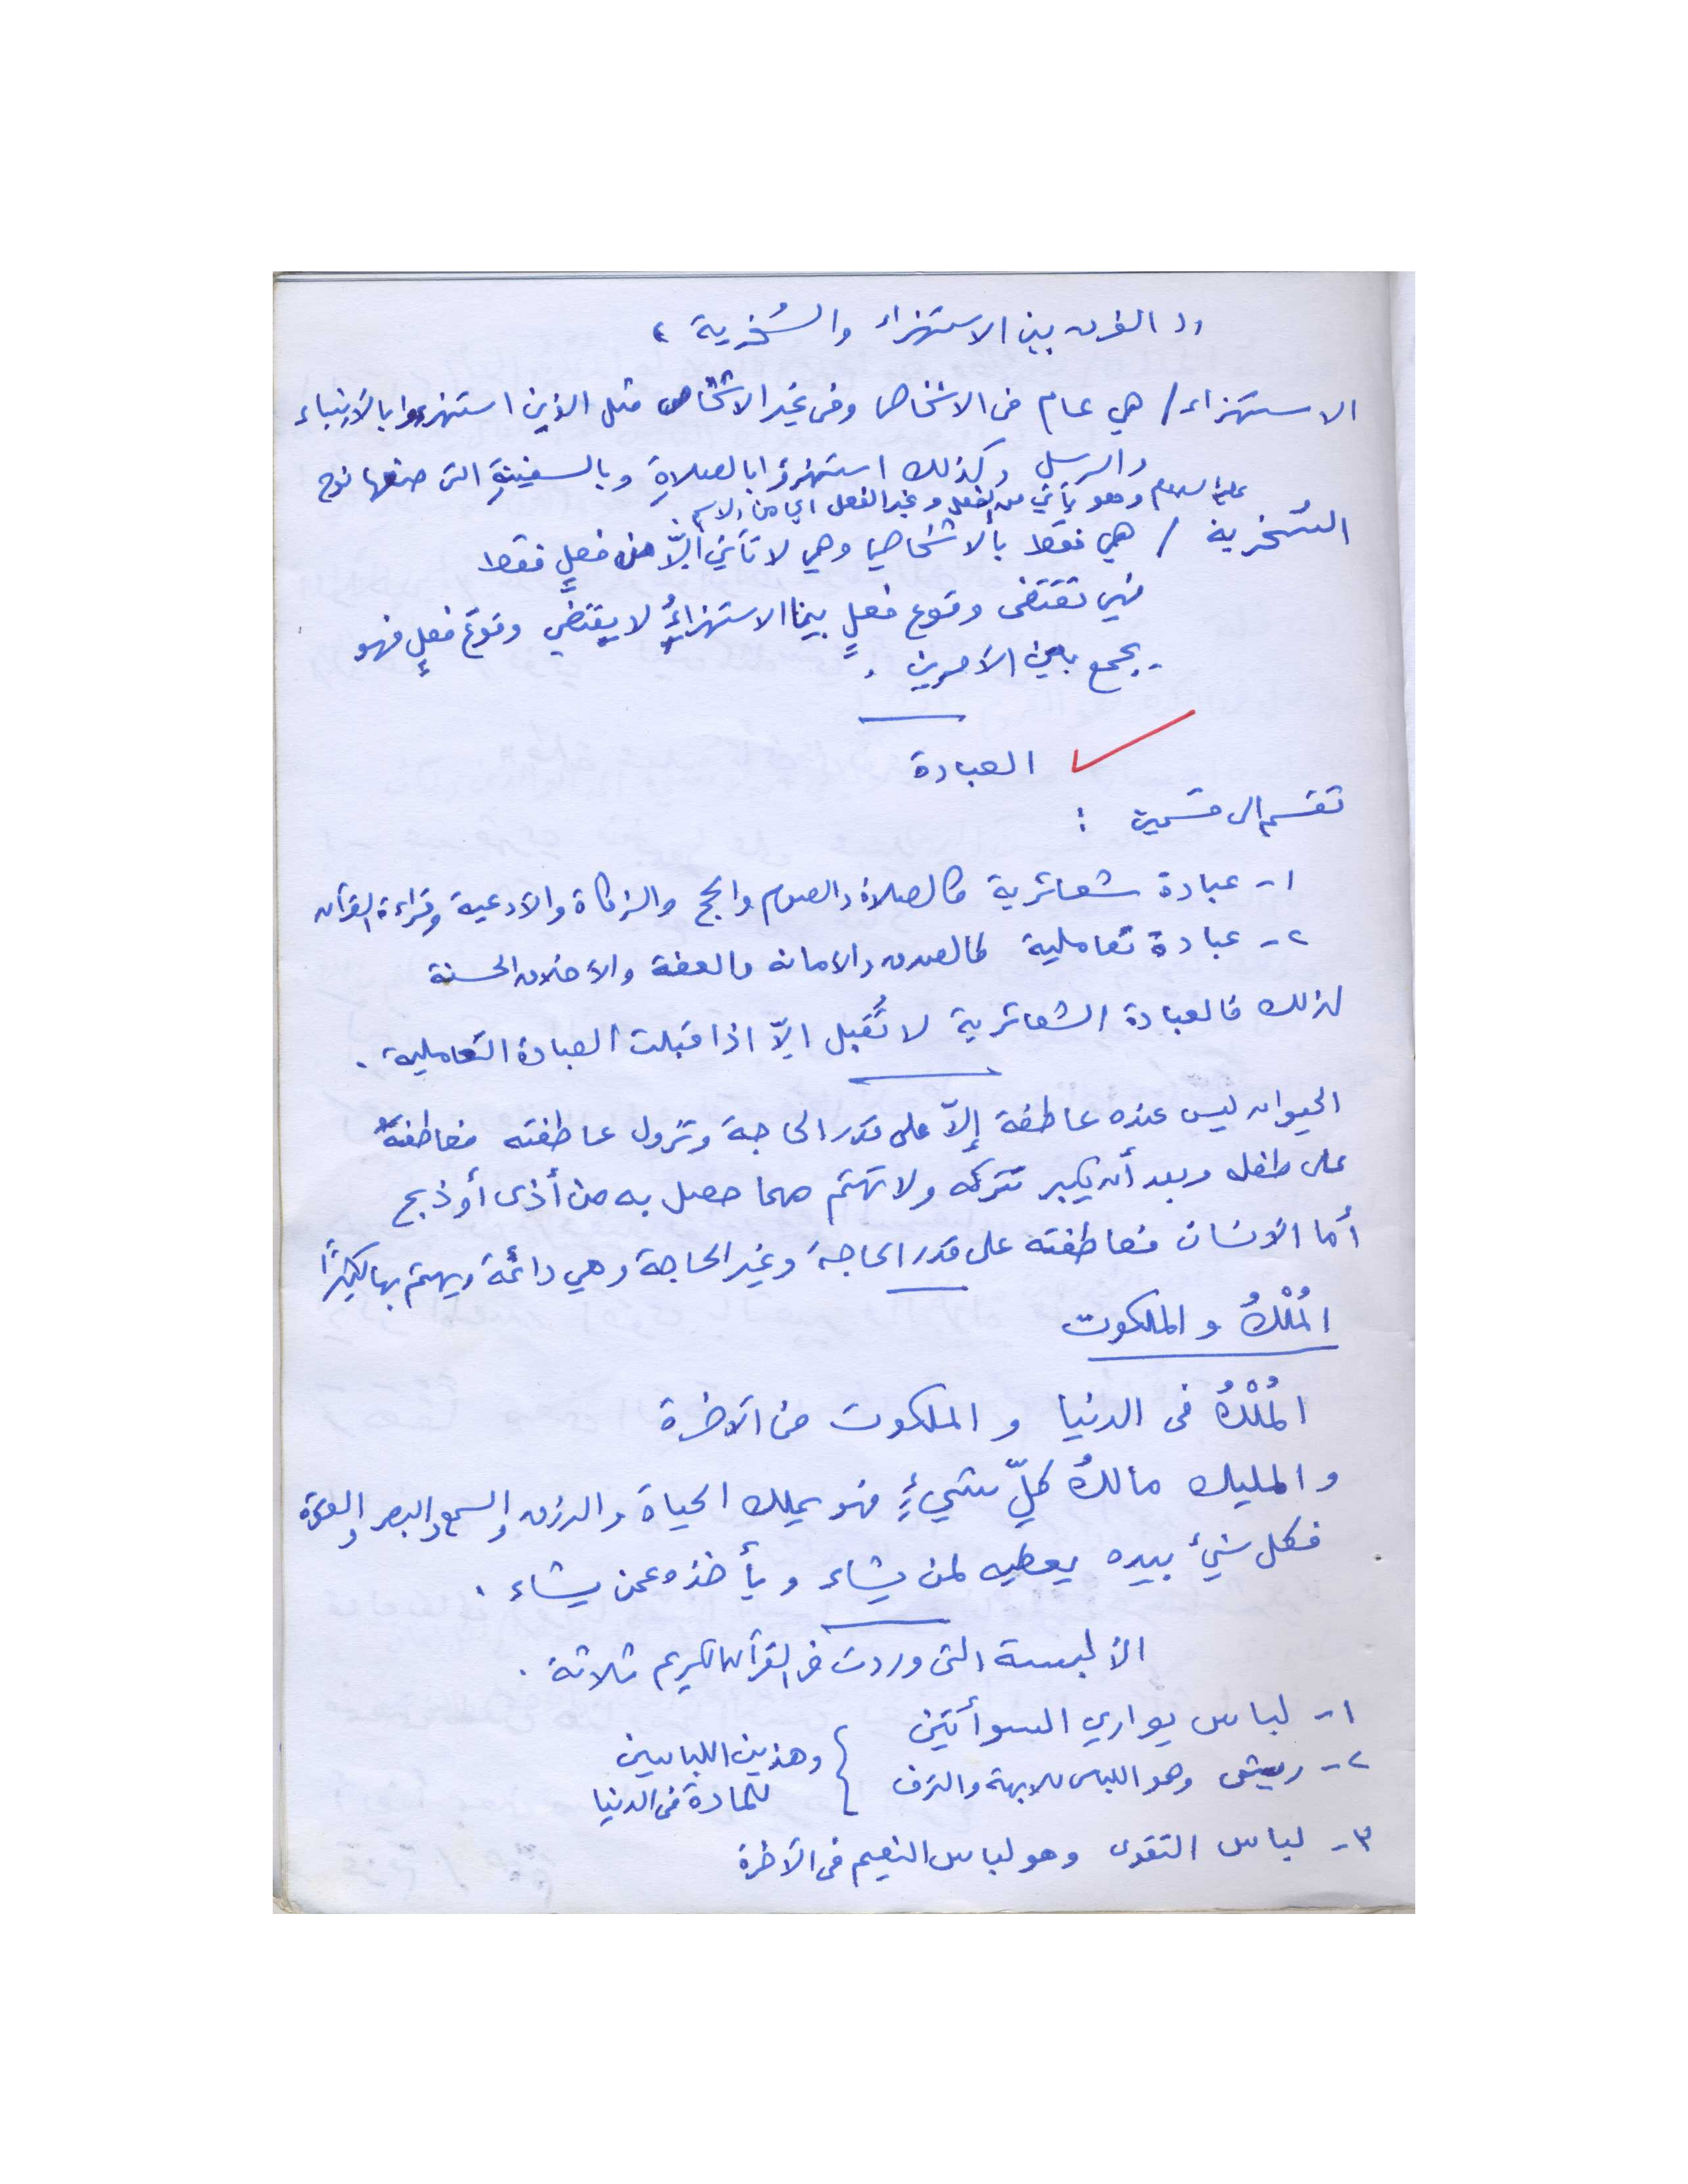 (( الفرق بين الاستهزاء والسُخرية ))
الاستهزاء / هي عام في الاشخاص وفي غير الاشخاص مثل الذين استهزءوا بالأنبياء
والرسل وكذلك استهزؤا بالصلاةِ وبالسفينةِ التي صنعها نوح
عليه السلام وهو يأتي من الفعل وغير الفعل اي من الاسم
السُخرية / هي فقط بالاشخاص وهي لا تأتي إلّا من فعلٍ فقط
فهي تقتضي وقوع فعلٍ بينما الاستهزاءُ لا يقتضي وقوع فعلٍ فهو
يجمع بين الأمرين .
العبادة
تقسم الى قسمين :
١- عبادة شعائرية كالصلاة والصوم والحج والزكاة والأدعية وقراءة القرآن
٢- عبادة تعاملية كالصدق والامانة والعفة والأخلاق الحسنة
لذلك فالعبادة الشعائرية لا تُقبل الّا اذا قبلت العبادة التعاملية .
الحيوان ليس عنده عاطفة إلّا على قدر الحاجة وتزول عاطفته فعاطفتهُ
على طفله وبعد أن يكبر تتركه ولا تهتم مهما حصل به من أذى أو ذبح
أما الأنسان فعاطفته على قدر الحاجة وغير الحاجة وهي دائمة ويهتم بها كثيرًا
المُلْكُ و الملكوت
المُلْكُ في الدنيا و الملكوت في الآخرة
و المليك مالكُ كلّ شيءٍ فهو يملك الحياة والرزق والسمع والبصر والقوة
فكل شيءٍ بيده يعطيه لمن يشاء ويأخذه عمن يشاء .
الألبسة التي وردت في القرآن الكريم ثلاثة .
١- لباس يواري السوأتين
٢- ريش وهو اللباس للابهة والترف } وهذين اللباسين
للمادة في الدنيا
٣- لباس التقوى وهو لباس النعيم في الآخرة